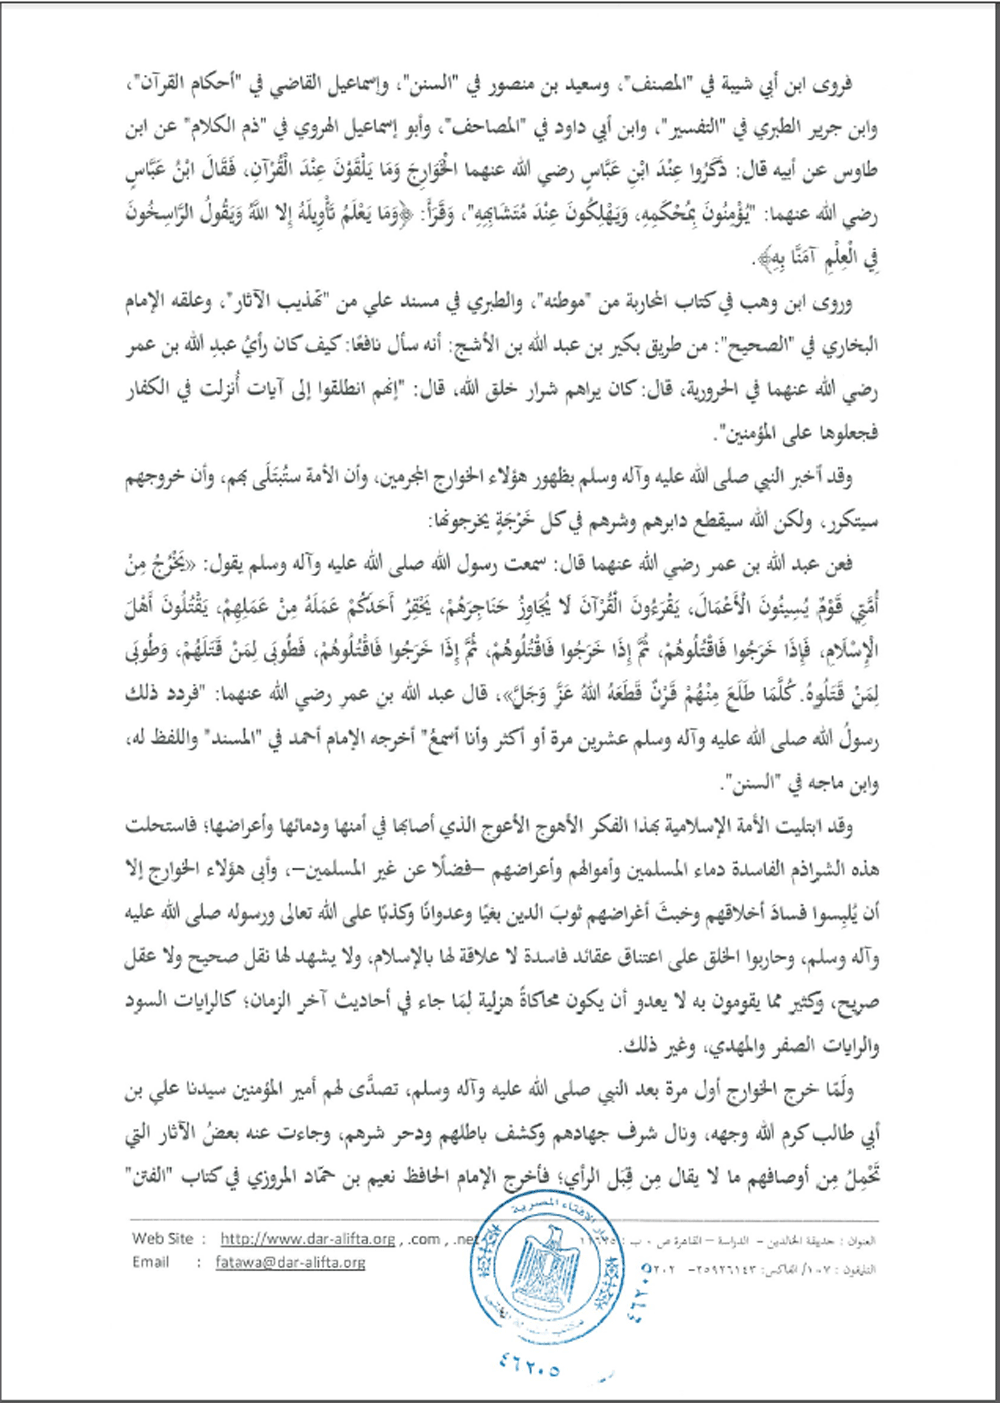 فروى ابن أبي شيبة في "المصنف"، وسعيد بن منصور في "السنن"، وإسماعيل القاضي في "أحكام القرآن"،
وابن جرير الطبري في "التفسير"، وابن أبي داود في "المصاحف"، وأبو إسماعيل الهروي في "ذم الكلام" عن ابن
طاوس عن أبيه قال: ذَكَرُوا عِنْدَ ابْنِ عَبَّاسٍ رضي الله عنهما الْخَوَارِجَ وَمَا يَلْقَوْنَ عِنْدَ الْقُرْآنِ، فَقَالَ ابْنُ عَبَّاسٍ
رضي الله عنهما: "يُؤْمِنُونَ بِمُحْكَمِهِ، وَيَهْلِكُونَ عِنْدَ مُتَشَابِهِهِ"، وَقَرَأَ: ﴿وَمَا يَعْلَمُ تَأْوِيلَهُ إِلا اللَّهُ وَيَقُولُ الرَّاسِخُونَ
فِي الْعِلْمِ آمَنَّا بِهِ﴾.
وروى ابن وهب في كتاب المحاربة من "موطئه"، والطبري في مسند علي من "تهذيب الآثار"، وعلقه الإمام
البخاري في "الصحيح": من طريق بكير بن عبد الله بن الأشج: أنه سأل نافعًا: كيف كان رأيُ عبدِ الله بن عمر
رضي الله عنهما في الحرورية، قال: كان يراهم شرار خلق الله، قال: "إنهم انطلقوا إلى آيات أُنزلت في الكفار
فجعلوها على المؤمنين".
وقد أخبر النبي صلى الله عليه وآله وسلم بظهور هؤلاء الخوارج المجرمين، وأن الأمة ستُبتَلَى بهم، وأن خروجهم
سيتكرر، ولكن الله سيقطع دابرهم وشرهم في كل خَرْجَةٍ يخرجونها:
فعن عبد الله بن عمر رضي الله عنهما قال: سمعت رسول الله صلى الله عليه وآله وسلم يقول: «يَخْرُجُ مِنْ
أُمَّتِي قَوْمٌ يُسِيئُونَ الْأَعْمَالَ، يَقْرَءُونَ الْقُرْآنَ لَا يُجَاوِزُ حَنَاجِرَهُمْ، يَحْقِرُ أَحَدُكُمْ عَمَلَهُ مِنْ عَمَلِهِمْ، يَقْتُلُونَ أَهْلَ
الْإِسْلَامِ، فَإِذَا خَرَجُوا فَاقْتُلُوهُمْ، ثُمَّ إِذَا خَرَجُوا فَاقْتُلُوهُمْ، ثُمَّ إِذَا خَرَجُوا فَاقْتُلُوهُمْ، فَطُوبَى لِمَنْ قَتَلَهُمْ، وَطُوبَى
لِمَنْ قَتَلُوهُ. كُلَّمَا طَلَعَ مِنْهُمْ قَرْنٌ قَطَعَهُ اللهُ عَزَّ وَجَلَّ»، قال عبد الله بن عمرِ رضي الله عنهما: "فردد ذلك
رسولُ الله صلى الله عليه وآله وسلم عشرين مرة أو أكثر وأنا أسمعُ" أخرجه الإمام أحمد في "المسند" واللفظ له،
وابن ماجه في "السنن".
وقد ابتليت الأمة الإسلامية بهذا الفكر الأهوج الأعوج الذي أصابها في أمنها ودمائها وأعراضها؛ فاستحلت
هذه الشراذم الفاسدة دماء المسلمين وأموالهم وأعراضهم –فضلًا عن غير المسلمين–، وأبى هؤلاء الخوارج إلا
أن يُلبِسوا فسادَ أخلاقهم وخبثَ أغراضهم ثوبَ الدين بغيًا وعدوانًا وكذبًا على الله تعالى ورسوله صلى الله عليه
وآله وسلم، وحاربوا الخلق على اعتناق عقائد فاسدة لا علاقة لها بالإسلام، ولا يشهد لها نقل صحيح ولا عقل
صريح، وكثير مما يقومون به لا يعدو أن يكون محاكاةً هزلية لِمَا جاء في أحاديث آخر الزمان؛ كالرايات السود
والرايات الصفر والمهدي، وغير ذلك.
ولَمّا خرج الخوارج أول مرة بعد النبي صلى الله عليه وآله وسلم، تصدَّى لهم أمير المؤمنين سيدنا علي بن
أبي طالب كرم الله وجهه، ونال شرف جهادهم وكشف باطلهم ودحر شرهم، وجاءت عنه بعضُ الآثار التي
تَحْمِلُ مِن أوصافهم ما لا يقال مِن قِبَل الرأي؛ فأخرج الإمام الحافظ نعيم بن حمّاد المروزي في كتاب "الفتن"
Web Site : http://www.dar-alifta.org , .com , .net
العنوان : حديقة الخالدين – الدراسة – القاهرة ص ٠ ب :
Email : fatawa@dar-alifta.org
التليفون : ١٠٧/ الفاكس: ٢٥٩٢٦١٤٣–
دار الإفتاء المصرية
٤٦٢٠٥
٤٦٢٠٥